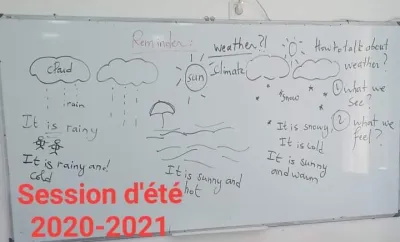 Reminder:
weather?!
Climate
cloud
rain
sun
snow
How to talk about
weather?
① what we
see?
② what we
feel?
It is rainy
It is rainy and
cold
It is sunny and
hot
It is snowy
It is cold
It is sunny
and warm
Session d'été
2020-2021